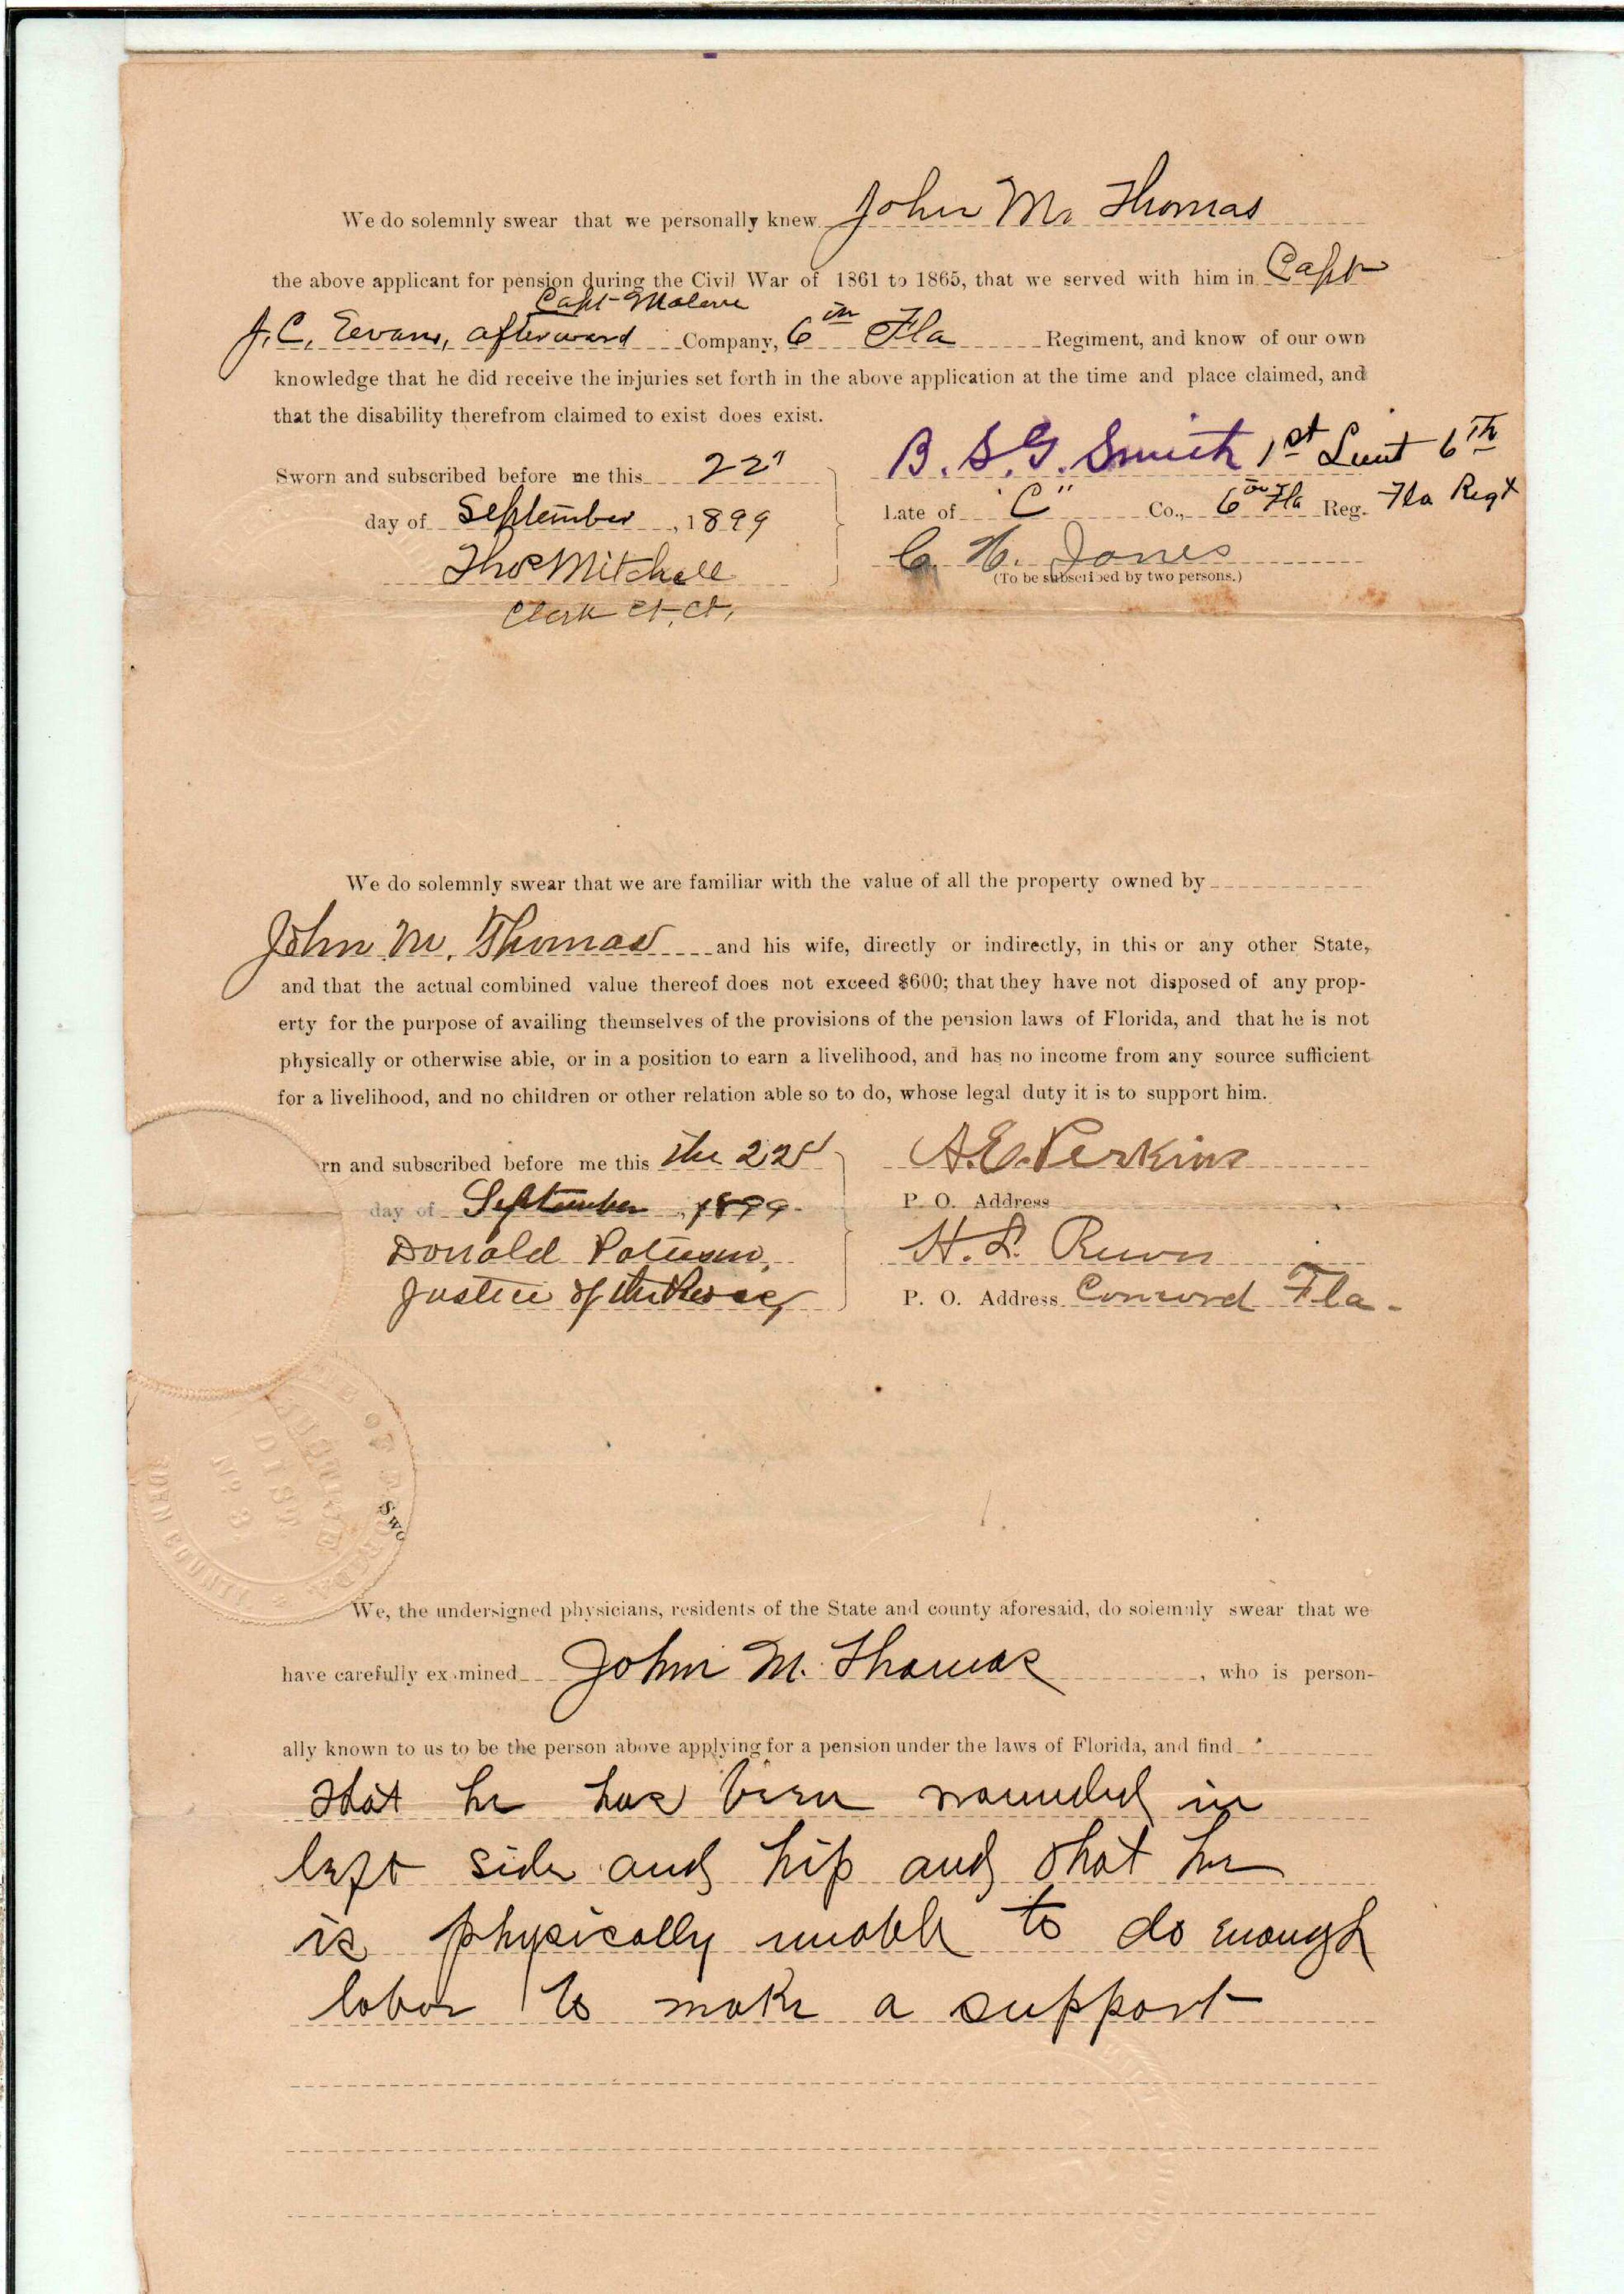 We do solemnly swear that we personally knew John M. Thomas
the above applicant for pension during the Civil War of 1861 to 1865, that we served with him in Capt
Capt Malone
J. C. Evans, afterward Company, 6th Fla Regiment, and know of our own
knowledge that he did receive the injuries set forth in the above application at the time and place claimed, and
that the disability therefrom claimed to exist does exist.
Sworn and subscribed before me this 22"
day of September, 1899
Thos Mitchell
Clerk Ct. Ct.
B. S. G. Smith 1st Lieut 6th
Late of "C" Co., 6th Fla Reg. Fla Regt
C. H. Jones
(To be subscribed by two persons.)
We do solemnly swear that we are familiar with the value of all the property owned by
John M. Thomas and his wife, directly or indirectly, in this or any other State,
and that the actual combined value thereof does not exceed $600; that they have not disposed of any prop-
erty for the purpose of availing themselves of the provisions of the pension laws of Florida, and that he is not
physically or otherwise able, or in a position to earn a livelihood, and has no income from any source sufficient
for a livelihood, and no children or other relation able so to do, whose legal duty it is to support him.
rn and subscribed before me this the 22d
day of September, 1899.
Donald
Justice of the Peace
A. E. Perkins
P. O. Address
H. L.
P. O. Address Concord Fla.
DIST
No. 3
DEN COUNTY
Swo
We, the undersigned physicians, residents of the State and county aforesaid, do solemnly swear that we
have carefully ex mined John M. Thomas, who is person-
ally known to us to be the person above applying for a pension under the laws of Florida, and find
that he has been wounded in
left side and hip and that he
is physically unable to do enough
labor to make a support